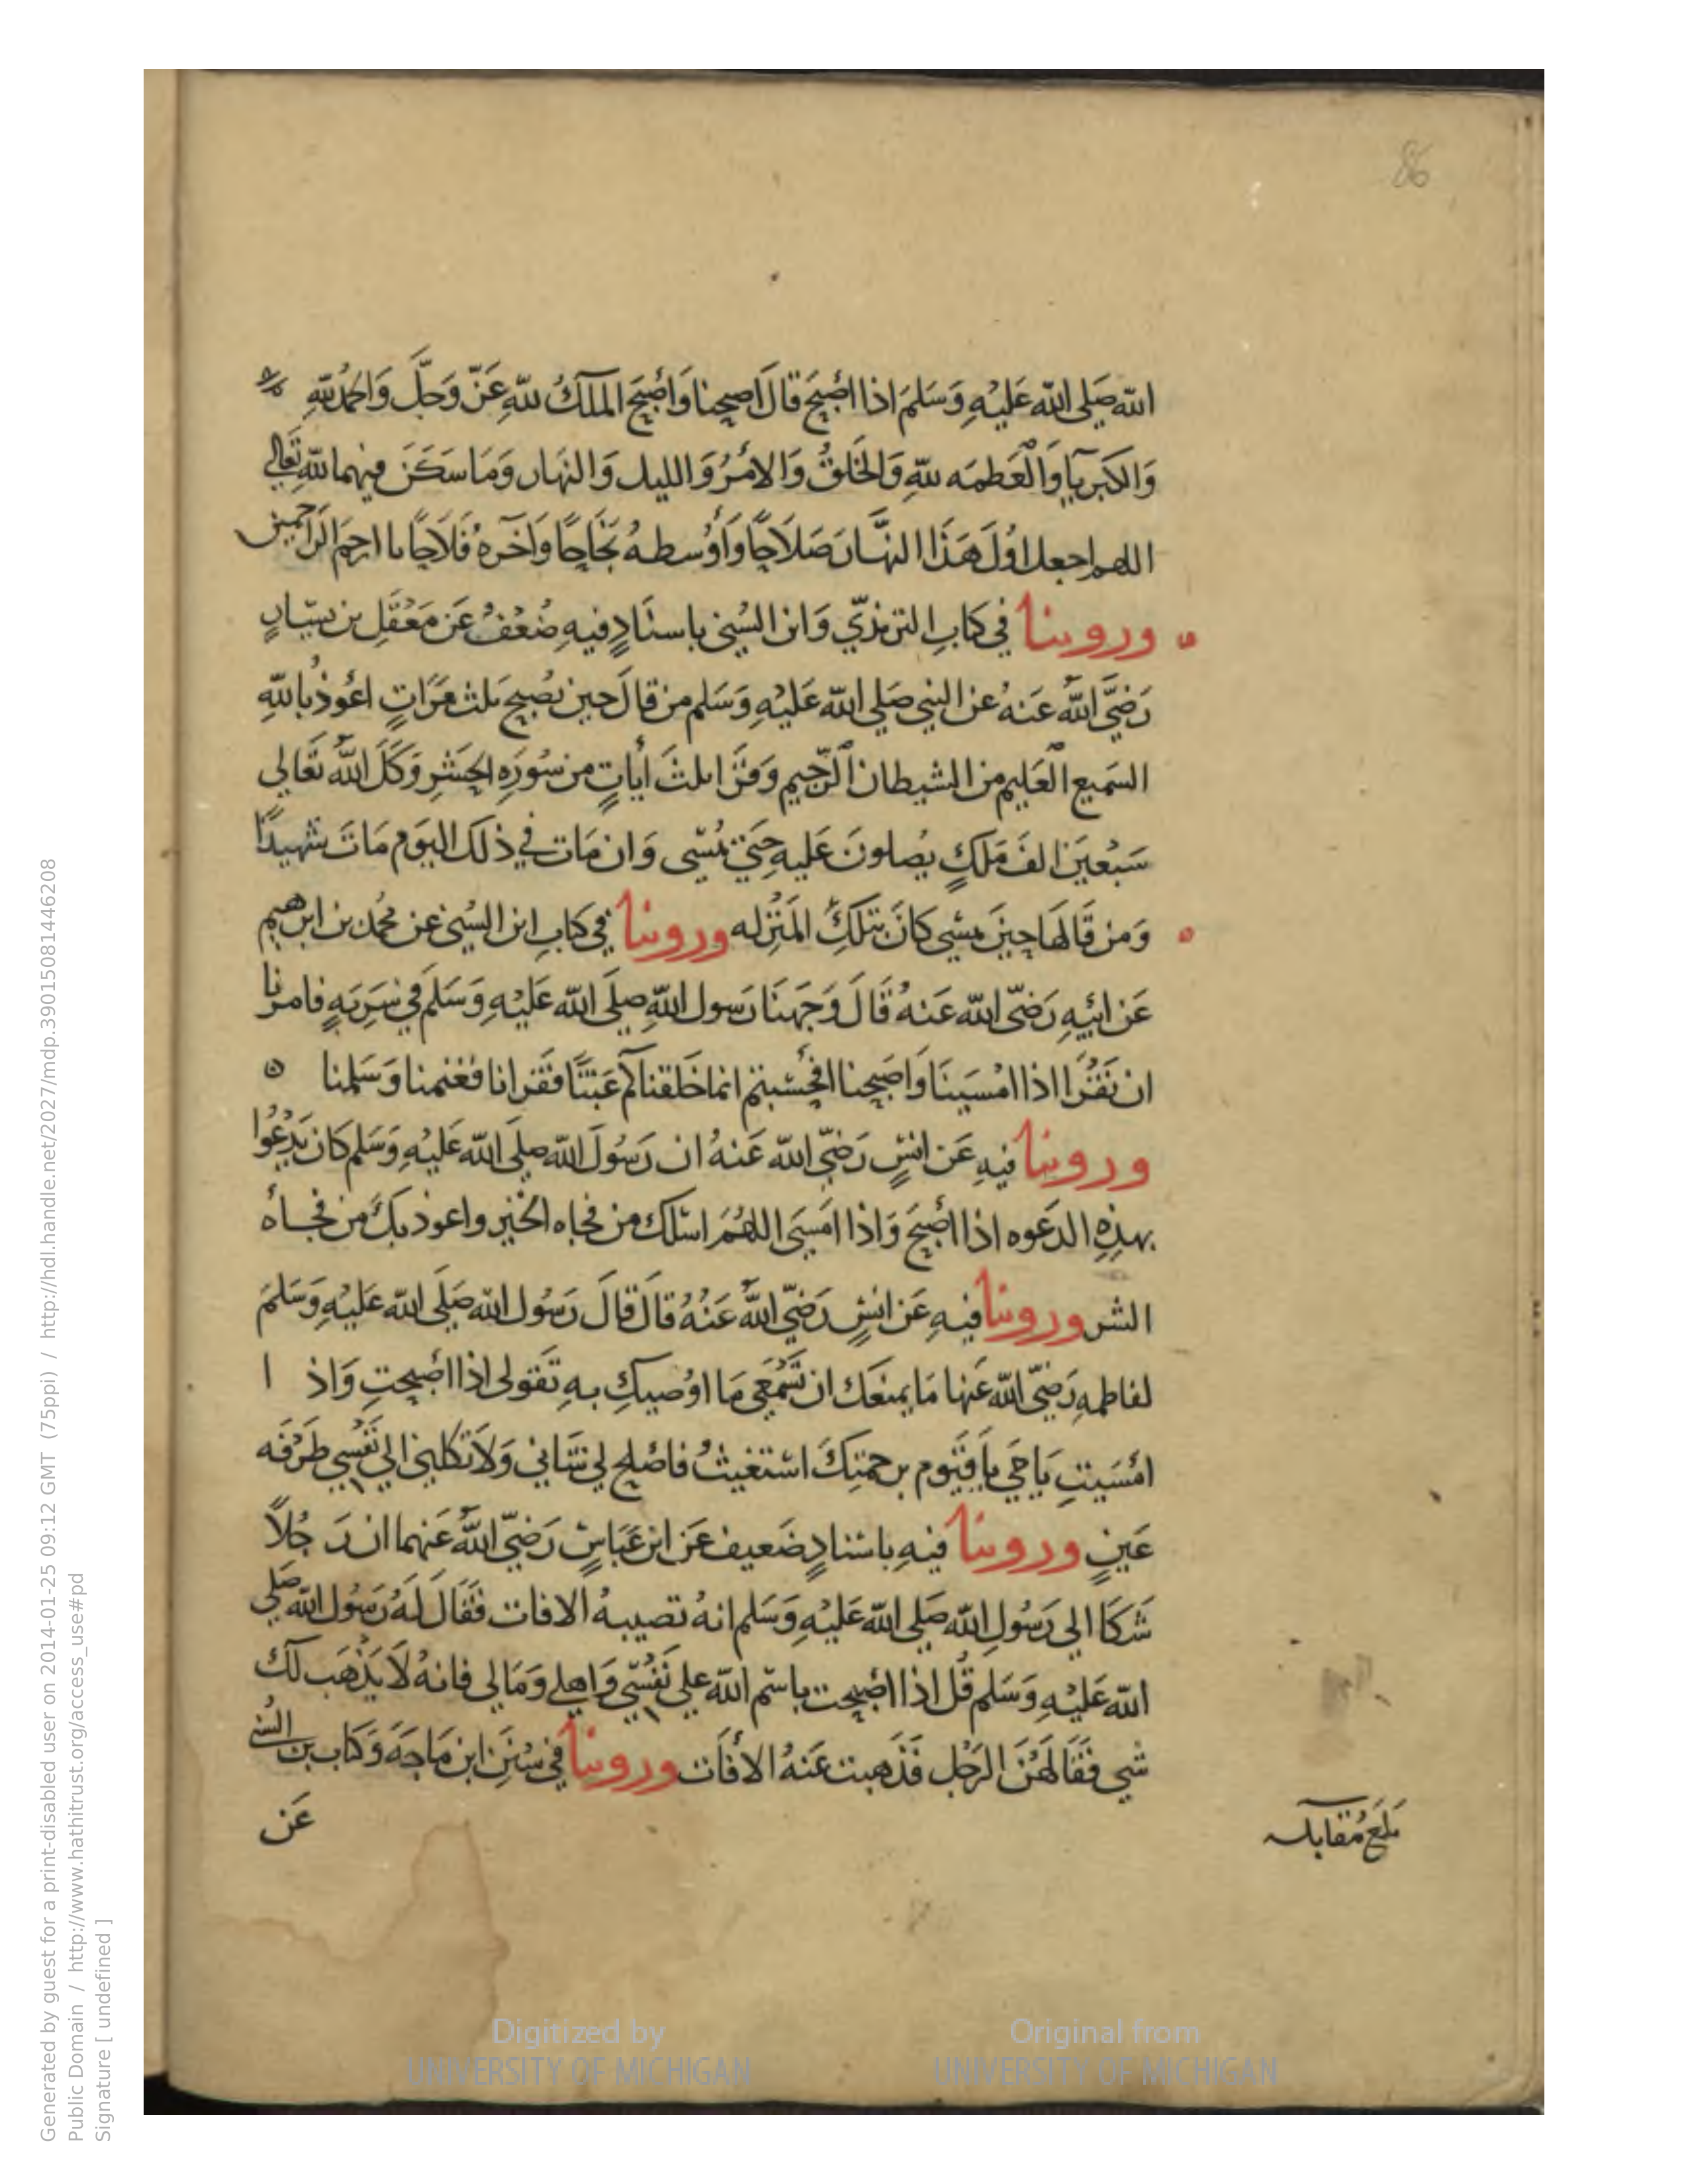 86
الله صَلي الله عَليْهِ وَسَلمَ اذا اَصْبَحَ قالَ اصبحنا وَاَصْبَحَ الملكُ للهِ عَزّ وَجَلّ وَالحمْدُ للهِ
وَالكبريآءِ وَالْعَظمَه للهِ وَالخَلقُ وَالامْرُ وَالليل وَالنهَار وَمَا سَكَنَ فيهما للهِ تَعَالي
اللهم اجعل اوّلَ هَذَا النهَّار صَلَاحًا وَأَوْسطهُ نَجَاحًا وَآخرهُ فَلَاحًا يا ارحمَ الرَاحمين
وروينا في كتابِ الترمذيّ وَابن السُني باسنَادٍ فيهِ ضُعْفُ عَن مَعْقَلِ بن يسَارٍ
رَضيَّ اللهُ عَنهُ عن النبي صَلي الله عَليْهِ وَسَلم من قالَ حين يصْبح ثلث مَرَّاتٍ اعُوذُ باللهِ
السَميع الْعَليم من الشيطان الرّجيم وَقرَا ثلثَ أيَاتٍ من سُورَهِ الحشرِ وَكَّلَ اللهُ تَعَالي
سَبْعينَ الفَ مَلكٍ يصلونَ عَليهِ حَتي يمْسي وَان مَات في ذلك اليَوم مَاتَ شهيدًا
وَمن قَالهَا حينَ يمسي كَانَ بتلكَ المَنْزله وروينا في كتابِ ابن السُني عن محُمد بن ابرهيم
عَن ابيْهِ رَضيّ الله عَنهُ قَالَ وَجهنَا رَسول اللهِ صلَي الله عَليْهِ وَسَلمَ في سَرِيَهٍ فامرنا
ان نَقْرَا اذا امْسَينَا وَاصَبحنا افحَسْبتم انما خَلقناكم عَبَثًا فقرانا فغنمنا وَسَلمنا ه
وروينا فيهِ عَن انسٍ رَضيّ الله عَنهُ ان رَسُولَ الله صلَي الله عَليهِ وَسَلم كَان يَدْعُوا
بهذِهِ الدعَوه اذا اَصْبحَ وَاذا امَسَي اللهُم اسئلك من فجاه الخيْر واعوذ بكَ من فجاه
الشر وروينا فيهِ عَن انسٍ رَضيّ اللهُ عَنْهُ قالَ قالَ رَسُول الله صَلَي الله عَليْهِ وَسَلمَ
لفاطمهِ رَضيّ الله عَنها مَا يمنعَك ان تَسْمَعي مَا اوُصيكِ بهِ تَقولي اذا اَصْبحتِ وَاذ ا
امْسَيتِ يَا حَي يَا قَيُّوم برحمتِكَ استغيثُ فاصْلح لي شَاني وَلَا تكلني الي نَفْسي طَرْفَه
عَينٍ وروينا فيهِ باسْنادٍ ضَعيف عَن ابن عَبَاسٍ رَضيّ اللهُ عَنهما ان رَ جُلاً
شَكَا الي رَسُولِ الله صَلي الله عَليْهِ وَسَلم انهُ تصيبهُ الافات فَقَالَ لَهُ رَسُول الله صَلي
الله عَليْهِ وَسَلم قُل اذا اَصْبحت باسْم الله علي نَفْسّي وَاهلي وَمَالي فانهُ لَا يَذْهَب لَك
شي فَقَالهَنَ الرَجُل فَذَهبت عَنهُ الافَات وروينا في سُنَنِ ابن مَاجَهَ وَكتاب بن السُّني
عَن
بَلغَ مُقَابله
Generated by guest for a print-disabled user on 2014-01-25 09:12 GMT (75ppi) / http://hdl.handle.net/2027/mdp.39015081446208
Public Domain / http://www.hathitrust.org/access_use#pd
Signature [ undefined ]
Digitized by
UNIVERSITY OF MICHIGAN
Original from
UNIVERSITY OF MICHIGAN